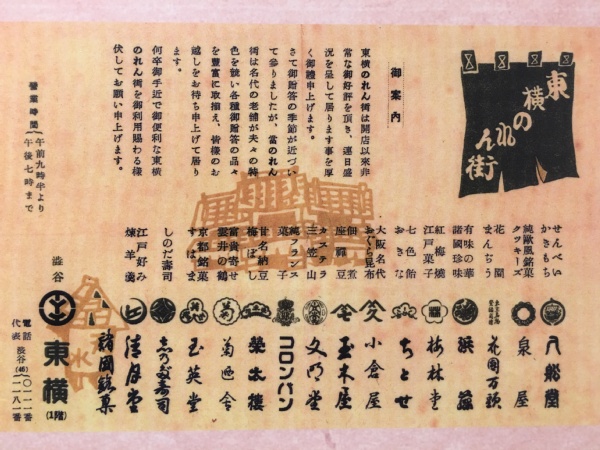 東横のれん街
御案内
東横のれん街は開店以来非
常な御好評を頂き、連日盛
況を呈して居ります事を厚
く御礼申上げます。
さて御贈答の季節が近づい
て参りましたが、当のれん
街は名代の老舗が夫々の特
色を競い各種御贈答の品々
を豊富に取揃え、皆様のお
越しをお待ち申上げて居り
ます。
何卒御手近で御便利な東横
のれん街を御利用賜わる様
伏してお願い申上げます。
営業時間(午前九時半より
午後七時まで
せんべい
かきもち
八船屋
純欧風銘菓
クツキーズ
泉屋
花園
まんぢう
花園万頭
有味の華
諸国珍味
紅梅焼
江戸菓子
梅林堂
七色飴
おきな
ちとせ
大阪名代
おぐら昆布
小倉屋
佃煮
座禅豆
玉木屋
カステラ
三笠山
文明堂
純フランス
菓子
コロンバン
甘名納豆
梅ぼし
栄太楼
富貴寄せ
雲井の鶴
菊廼舎
京都銘菓
すはま
玉英堂
しのだ寿司
志乃多寿司
江戸好み
煉羊羹
清月堂
諸国銘菓
渋谷
東横
(1階)
電話 渋谷(46)〇一一一番
代表 二一八一番